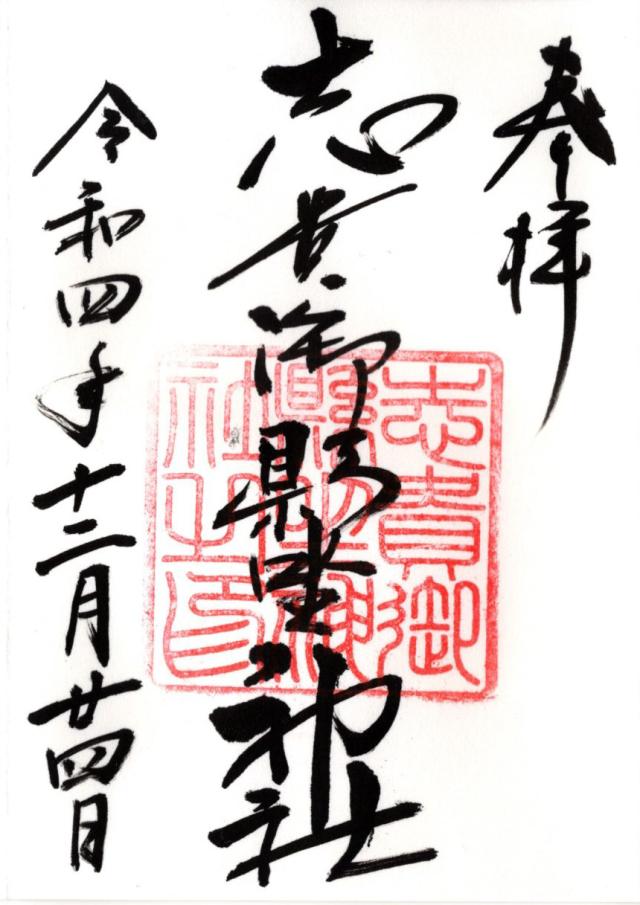 奉拝
志貴御縣坐神社
令和四年十二月廿四日
志貴御
縣坐神
社之印